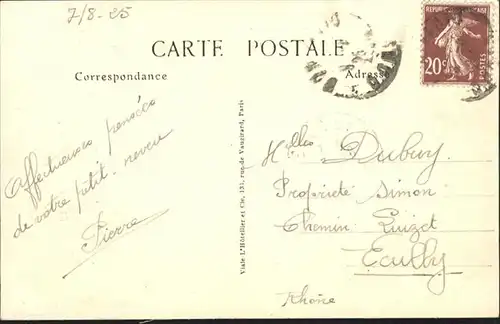 7/8-25
CARTE POSTALE
Correspondance
Adresse
RÉPUBLIQUE FRANÇAISE
20c
POSTES
Affectueuses pensées
de votre petit-neveu
Pierre
Viale L'Hôtellier et Cie, 131, rue de Vaugirard, Paris
Melles Dubuy
Propriété Simon
Chemin Luizet
Ecully
Rhône